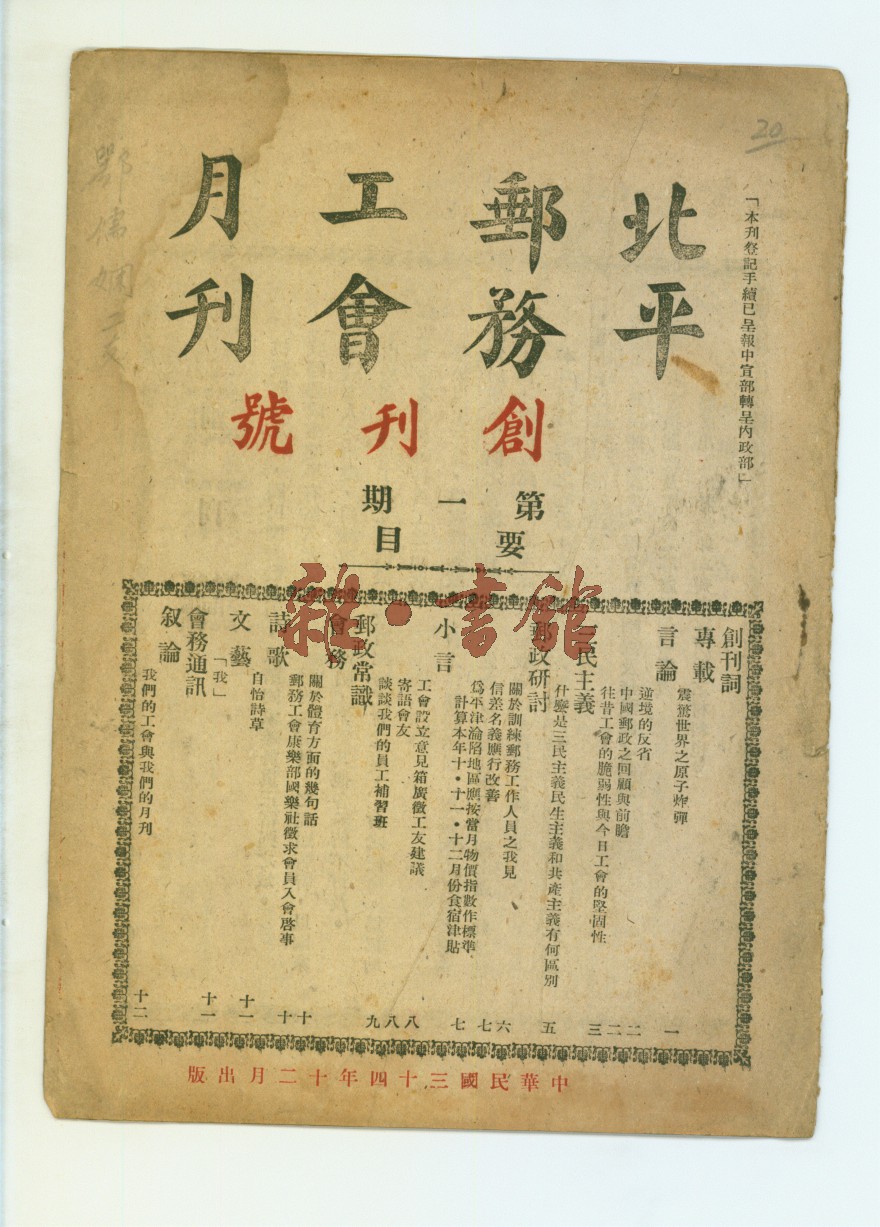 20
「本刊登記手續已呈報中宣部轉呈內政部」
北平
郵務
工會
月刊
創刊號
第一期
要目
創刊詞
專載
震驚世界之原子炸彈 一
言論
逆境的反省 二
中國郵政之回顧與前瞻 二
往昔工會的脆弱性與今日工會的堅固性 三
三民主義
什麼是三民主義民生主義和共產主義有何區別 五
郵政研討
關於訓練郵務工作人員之我見 六
信差名義應行改善 七
為平津淪陷地區應按當月物價指數作標準
計算本年十・十一・十二月份食宿津貼 七
小言
工會設立意見箱廣徵工友建議 八
寄語會友 八
談談我們的員工補習班 九
郵政常識
會務
關於體育方面的幾句話 十
郵務工會康樂部國樂社徵求會員入會啓事 十
詩歌
自怡詩草 十一
文藝
「我」 十一
會務通訊
叙論
我們的工會與我們的月刊 十二
中華民國三十四年十二月出版
雜・書館